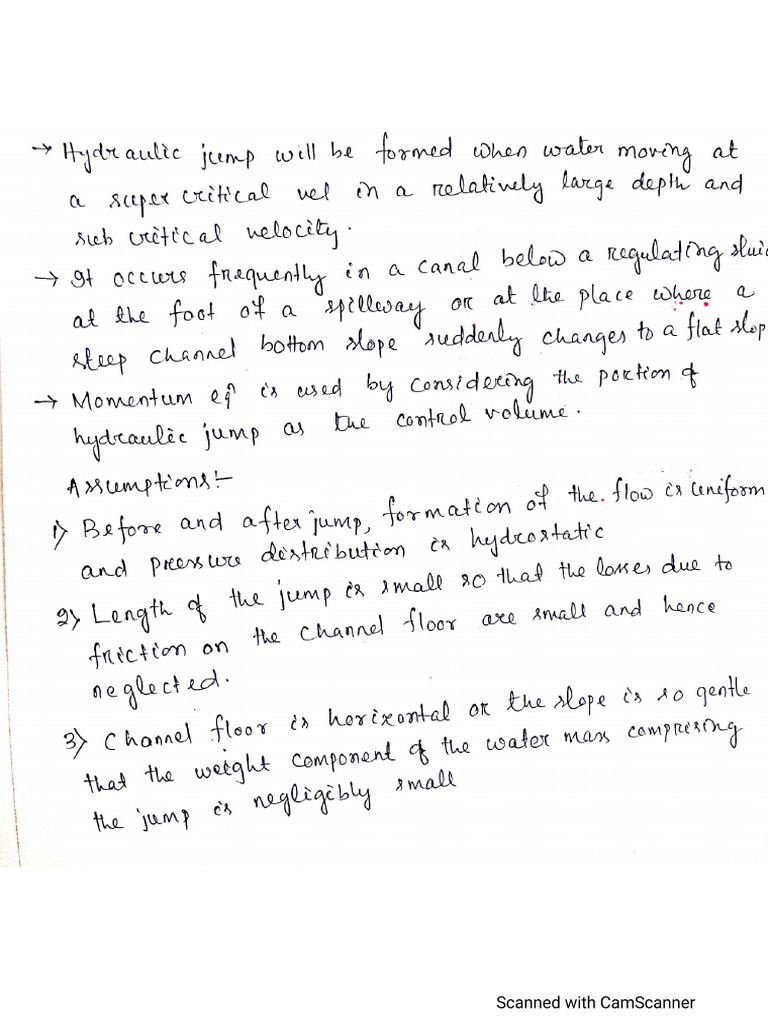 → Hydraulic jump will be formed when water moving at
a super critical vel in a relatively large depth and
sub critical velocity.
→ It occurs frequently in a canal below a regulating sluic
at the foot of a spillway or at the place where a
steep channel bottom slope suddenly changes to a flat slop
→ Momentum eqn is used by considering the portion of
hydraulic jump as the control volume.
Assumptions:-
1) Before and after jump, formation of the flow is uniform
and pressure distribution is hydrostatic
2) Length of the jump is small so that the losses due to
friction on the channel floor are small and hence
neglected.
3) Channel floor is horizontal or the slope is so gentle
that the weight component of the water mass comprising
the jump is negligibly small
Scanned with CamScanner